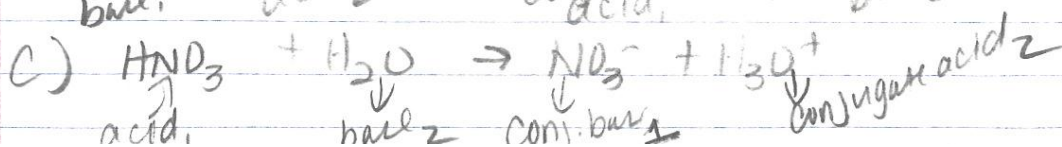 base, acid,
C) HNO₃ + H₂O → NO₃⁻ + H₃O⁺
acid, base 2 conj. base 1 conjugate acid 2